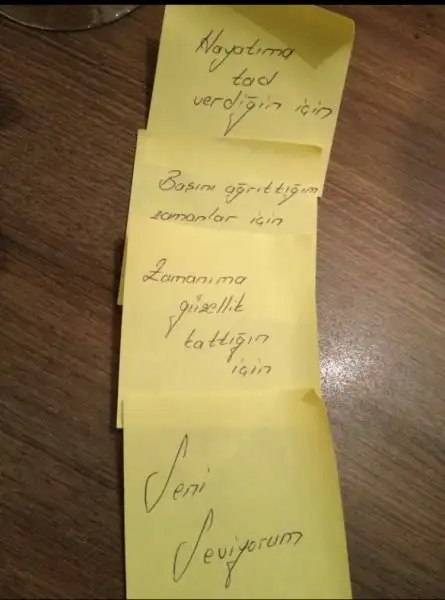 Hayatıma
tad
verdiğin için
Başını ağrıttığım
zamanlar için
Zamanıma
güzellik
kattığın
için
Seni
Seviyorum